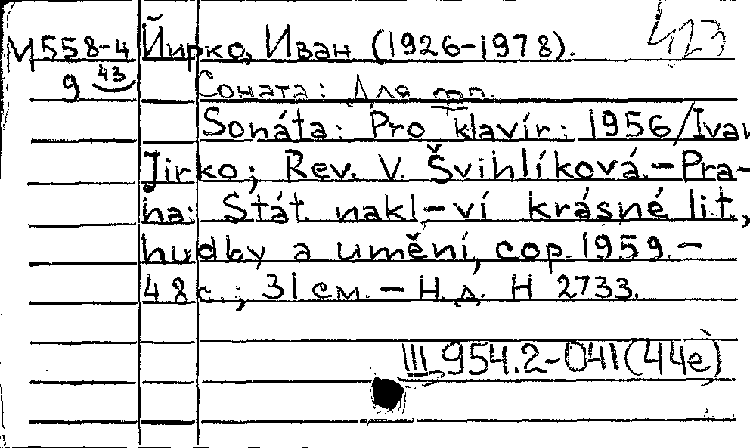 М558-4 Йирко, Иван (1926-1978). 423
9 43 Соната: Для фп.
Sonáta: Pro klavír: 1956/Ivan
Jirko; Rev. V. Švihlíková.-Pra-
ha: Stát. nakl-ví krásné lit.,
hudby a umění, cop. 1959.-
48 с.; 31 см. - Н.д. H 2733.
III 954.2-041(44е)